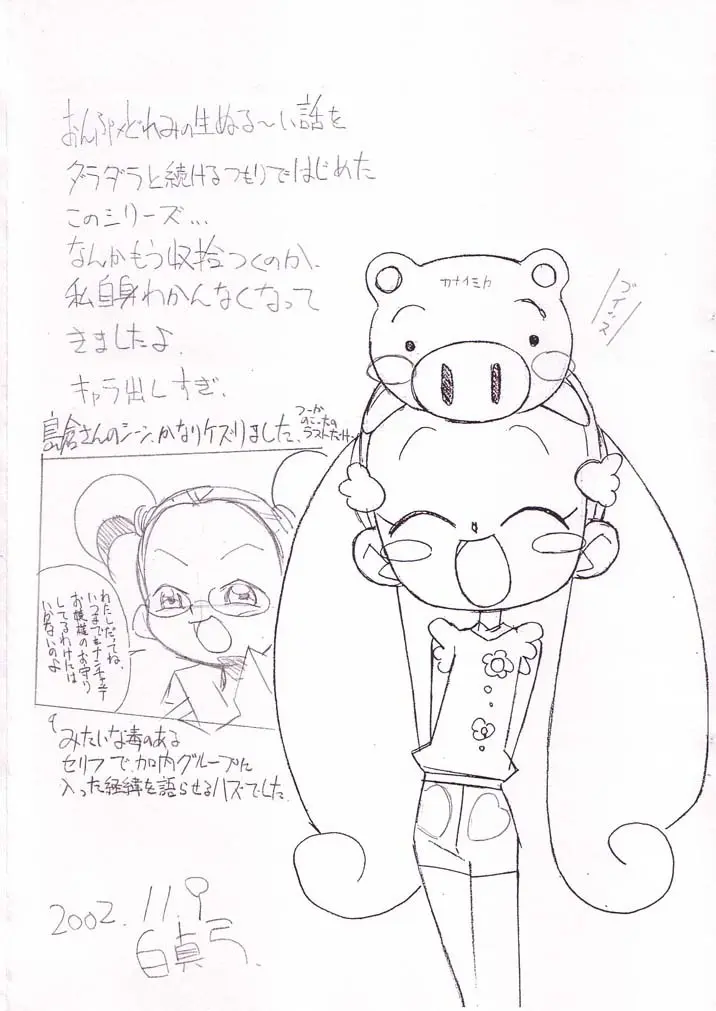 おんぷ×どれみの生ぬる～い話を
ダラダラと続けるつもりではじめた
このシリーズ...
なんかもう収拾つくのか、
私自身わかんなくなって
きましたよ.
キャラ出しすぎ.
島倉さんのシーン、かなりケズりました.
つーか
のこったの
ラストだけ.
カナイミカ
ブイッス
わたしだってね、
いつまでも
お嬢様のお守り
してるわけには
いかないのよ
みたいな毒のある
セリフで、加内グループに
入った経緯を語らせるハズでした.
2002. 11. 9
白真弓.